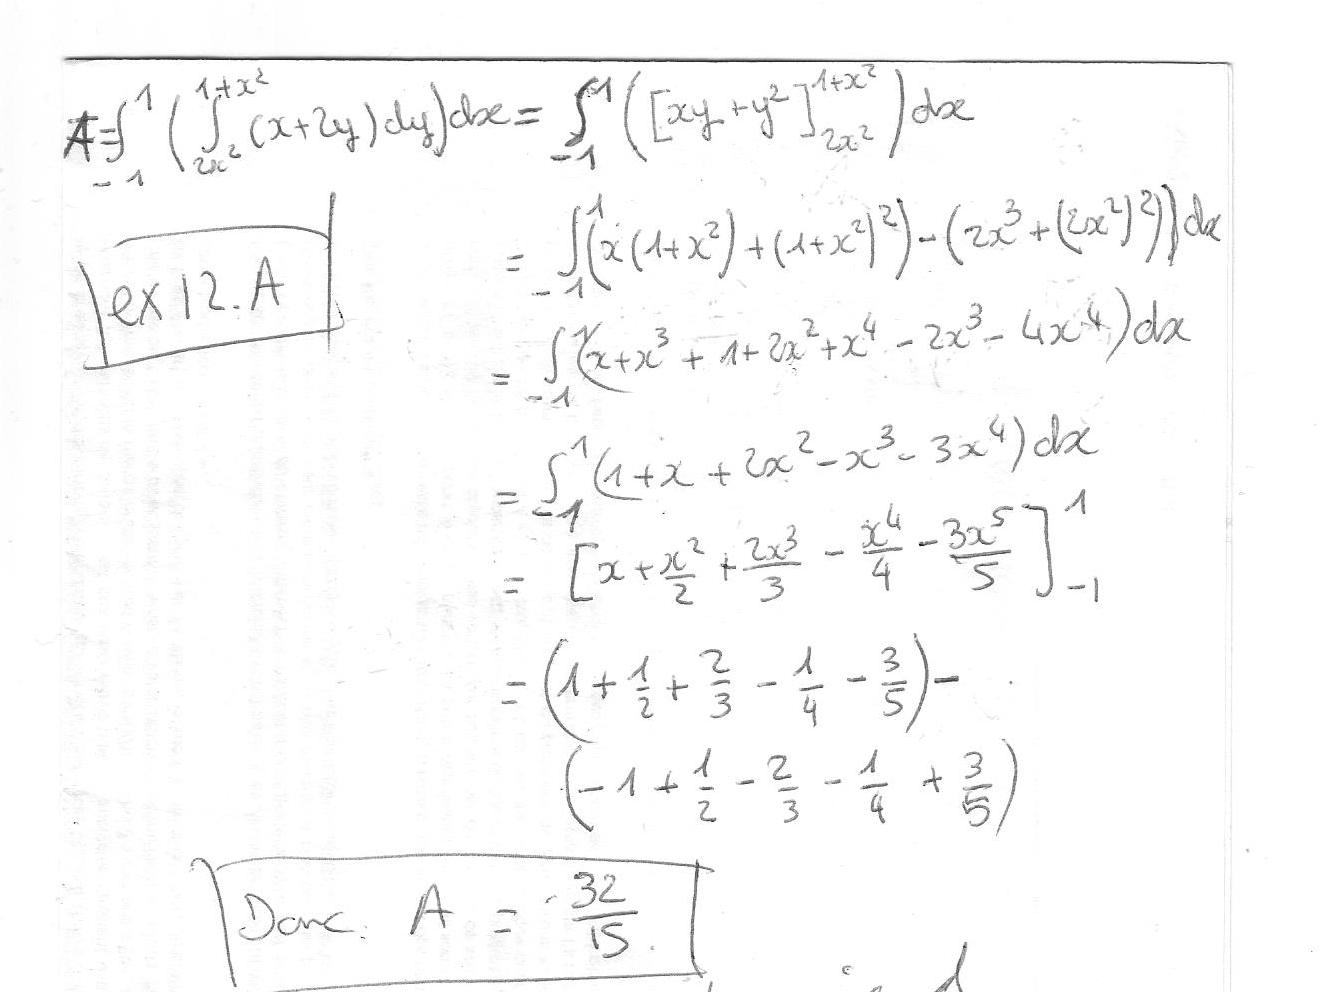 A = ∫_{-1}^{1} ( ∫_{2x²}^{1+x²} (x+2y) dy ) dx = ∫_{-1}^{1} ( [xy + y²]_{2x²}^{1+x²} ) dx
ex 12.A
= ∫_{-1}^{1} (x(1+x²) + (1+x²)²) - (2x³ + (2x²)²)) dx
= ∫_{-1}^{1} (x + x³ + 1 + 2x² + x⁴ - 2x³ - 4x⁴) dx
= ∫_{-1}^{1} (1 + x + 2x² - x³ - 3x⁴) dx
= [x + x²/2 + 2x³/3 - x⁴/4 - 3x⁵/5]_{-1}^{1}
= (1 + 1/2 + 2/3 - 1/4 - 3/5) -
(-1 + 1/2 - 2/3 - 1/4 + 3/5)
Donc. A = 32/15.